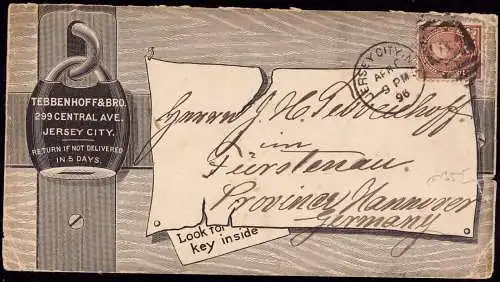 TEBBENHOFF & BRO.
299 CENTRAL AVE.
JERSEY CITY.
RETURN IF NOT DELIVERED
IN 5 DAYS.
JERSEY CITY, N.J.
APR
9 PM
96
Herrn J. H. Tebbenhoff.
in
Fürstenau.
Province Hannover
Germany
Look for
key inside